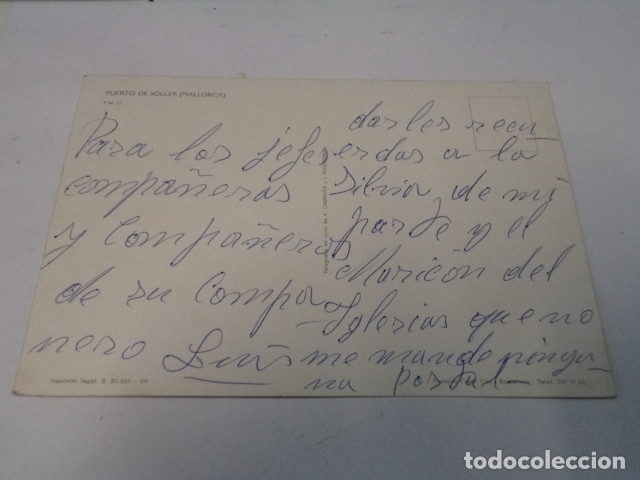 PUERTO DE SÓLLER (MALLORCA)
Para los jefes
compañeras
y compañeros
de su Compa
nero Luis
darles recu
erdos a la
Silvia, de mi
parte y el
Maricón del
Iglerias que no
me mande ningu-
na postal
Depósito legal. B.
todocoleccion.net